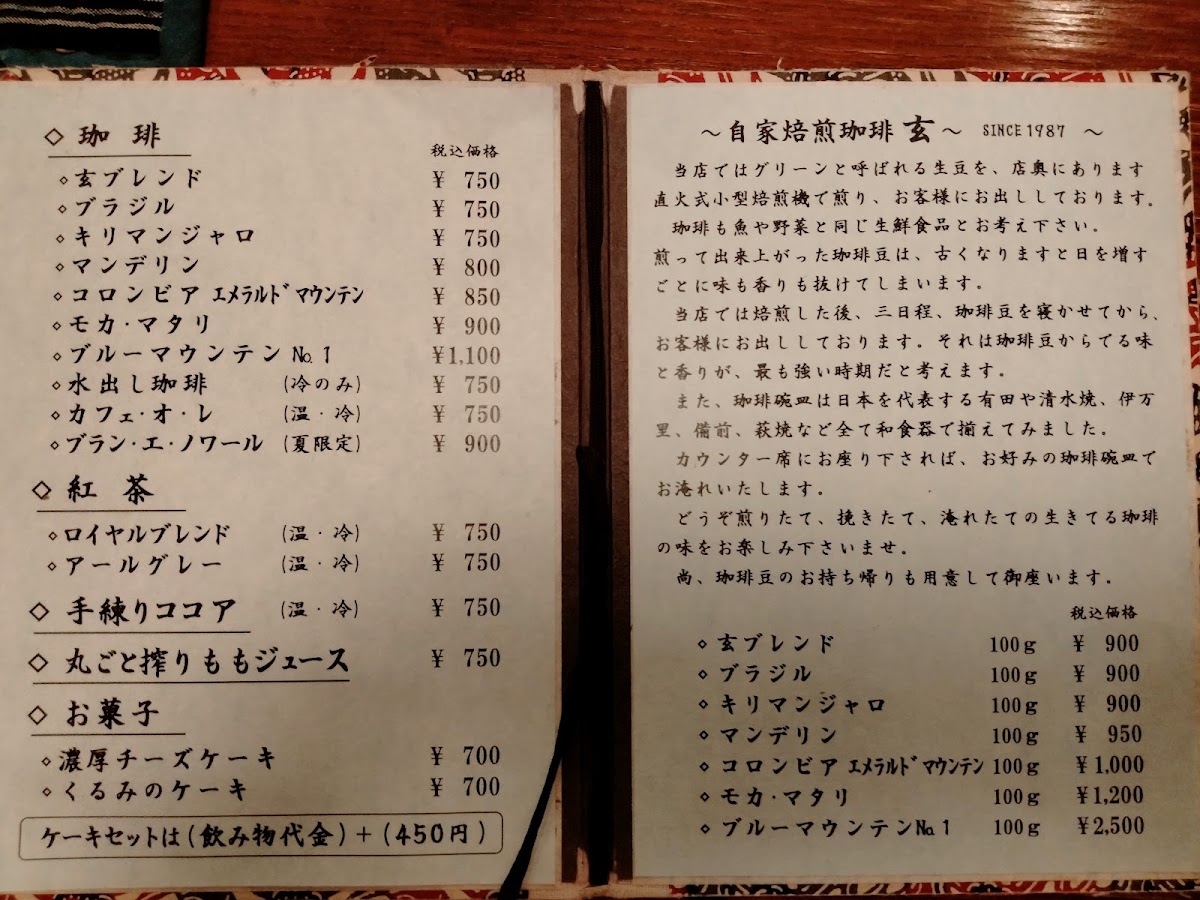 ◇ 珈琲
税込価格
◇玄ブレンド ¥ 750
◇ブラジル ¥ 750
◇キリマンジャロ ¥ 750
◇マンデリン ¥ 800
◇コロンビア エメラルドマウンテン ¥ 850
◇モカ・マタリ ¥ 900
◇ブルーマウンテン№1 ¥1,100
◇水出し珈琲 (冷のみ) ¥ 750
◇カフェ・オ・レ (温・冷) ¥ 750
◇ブラン・エ・ノワール (夏限定) ¥ 900
◇ 紅茶
◇ロイヤルブレンド (温・冷) ¥ 750
◇アールグレー (温・冷) ¥ 750
◇ 手練りココア (温・冷) ¥ 750
◇ 丸ごと搾りももジュース ¥ 750
◇ お菓子
◇濃厚チーズケーキ ¥ 700
◇くるみのケーキ ¥ 700
ケーキセットは(飲み物代金)+(450円)
~自家焙煎珈琲 玄~ SINCE1987 ~
当店ではグリーンと呼ばれる生豆を、店奥にあります
直火式小型焙煎機で煎り、お客様にお出ししております。
珈琲も魚や野菜と同じ生鮮食品とお考え下さい。
煎って出来上がった珈琲豆は、古くなりますと日を増す
ごとに味も香りも抜けてしまいます。
当店では焙煎した後、三日程、珈琲豆を寝かせてから、
お客様にお出ししております。それは珈琲豆からでる味
と香りが、最も強い時期だと考えます。
また、珈琲碗皿は日本を代表する有田や清水焼、伊万
里、備前、萩焼など全て和食器で揃えてみました。
カウンター席にお座り下されば、お好みの珈琲碗皿で
お淹れいたします。
どうぞ煎りたて、挽きたて、淹れたての生きてる珈琲
の味をお楽しみ下さいませ。
尚、珈琲豆のお持ち帰りも用意して御座います。
税込価格
◇玄ブレンド 100g ¥ 900
◇ブラジル 100g ¥ 900
◇キリマンジャロ 100g ¥ 900
◇マンデリン 100g ¥ 950
◇コロンビア エメラルドマウンテン 100g ¥1,000
◇モカ・マタリ 100g ¥1,200
◇ブルーマウンテン№1 100g ¥2,500